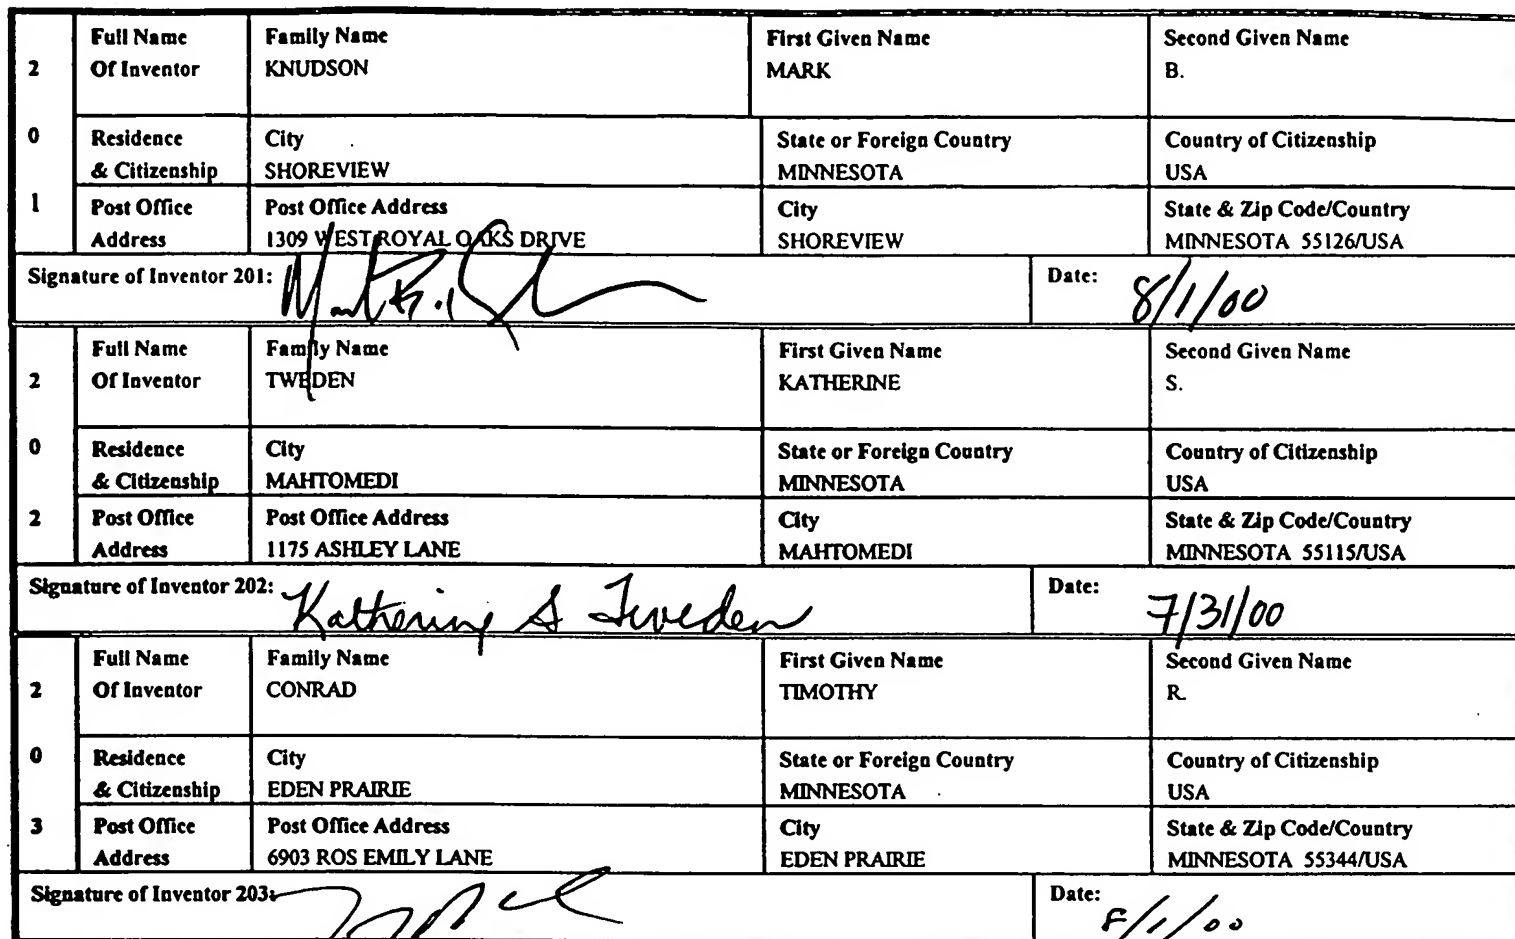 2 Full Name Of Inventor Family Name KNUDSON First Given Name MARK Second Given Name B.
0 Residence & Citizenship City SHOREVIEW State or Foreign Country MINNESOTA Country of Citizenship USA
1 Post Office Address Post Office Address 1309 WEST ROYAL OAKS DRIVE City SHOREVIEW State & Zip Code/Country MINNESOTA 55126/USA
Signature of Inventor 201: Date: 8/1/00
2 Full Name Of Inventor Family Name TWEDEN First Given Name KATHERINE Second Given Name S.
0 Residence & Citizenship City MAHTOMEDI State or Foreign Country MINNESOTA Country of Citizenship USA
2 Post Office Address Post Office Address 1175 ASHLEY LANE City MAHTOMEDI State & Zip Code/Country MINNESOTA 55115/USA
Signature of Inventor 202: Katherine S Tweden Date: 7/31/00
2 Full Name Of Inventor Family Name CONRAD First Given Name TIMOTHY Second Given Name R.
0 Residence & Citizenship City EDEN PRAIRIE State or Foreign Country MINNESOTA Country of Citizenship USA
3 Post Office Address Post Office Address 6903 ROS EMILY LANE City EDEN PRAIRIE State & Zip Code/Country MINNESOTA 55344/USA
Signature of Inventor 203: Date: 8/1/00